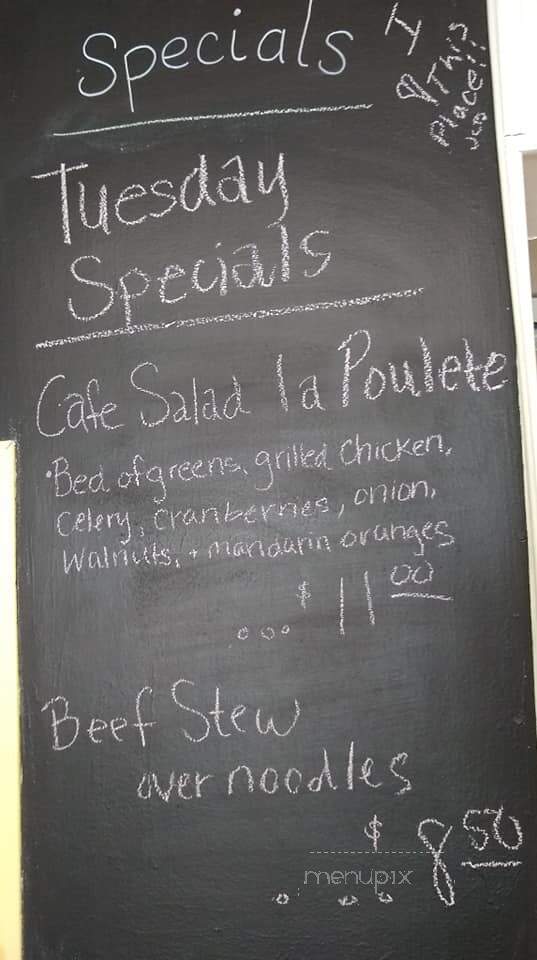 Specials
I
This
Place!!
Tuesday
Specials
Cafe Salad la Poulete
•Bed of greens, grilled chicken,
celery, cranberries, onion,
walnuts, + mandarin oranges
... $ 11 00
Beef Stew
over noodles
$ 8 50
menupix